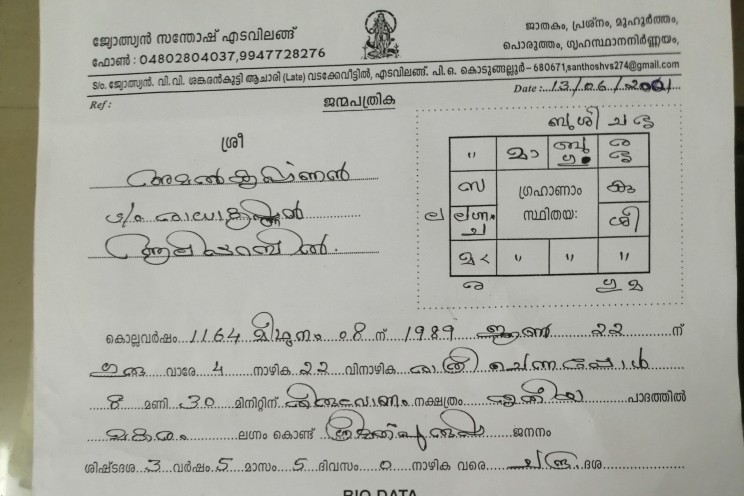 ജ്യോത്സ്യൻ സന്തോഷ് എടവിലങ്ങ്
ഫോൺ : 04802804037,9947728276
ജാതകം, പ്രശ്നം, മുഹൂർത്തം,
പൊരുത്തം, ഗൃഹസ്ഥാനനിർണ്ണയം,
S/o. ജ്യോത്സ്യൻ. വി.വി. ശങ്കരൻകുട്ടി ആചാരി (Late) വടക്കേവീട്ടിൽ, എടവിലങ്ങ്. പി.ഒ. കൊടുങ്ങല്ലൂർ - 680671,santhoshvs274@gmail.com
Ref :
Date : 13/06/2001
ജന്മപത്രിക
ശ്രീ
അമൽകൃഷ്ണൻ
" മാ
സ ഗ്രഹാണാം കു
ല ലഗ്നം സ്ഥിതയഃ ശി
ച
" " "
കൊല്ലവർഷം 1164 മിഥുനം 08 ന് 1989 ജൂൺ 22 ന്
ഗുരു വാരേ 4 നാഴിക 22 വിനാഴിക രാത്രി ചെന്നപ്പോൾ
8 മണി 30 മിനിറ്റിന് തിരുവോണം നക്ഷത്രം തൃതീയ പാദത്തിൽ
മകരം ലഗ്നം കൊണ്ട് ജനനം
ശിഷ്ടദശ 3 വർഷം 5 മാസം 5 ദിവസം 0 നാഴിക വരെ ചന്ദ്ര ദശ
BIO DATA